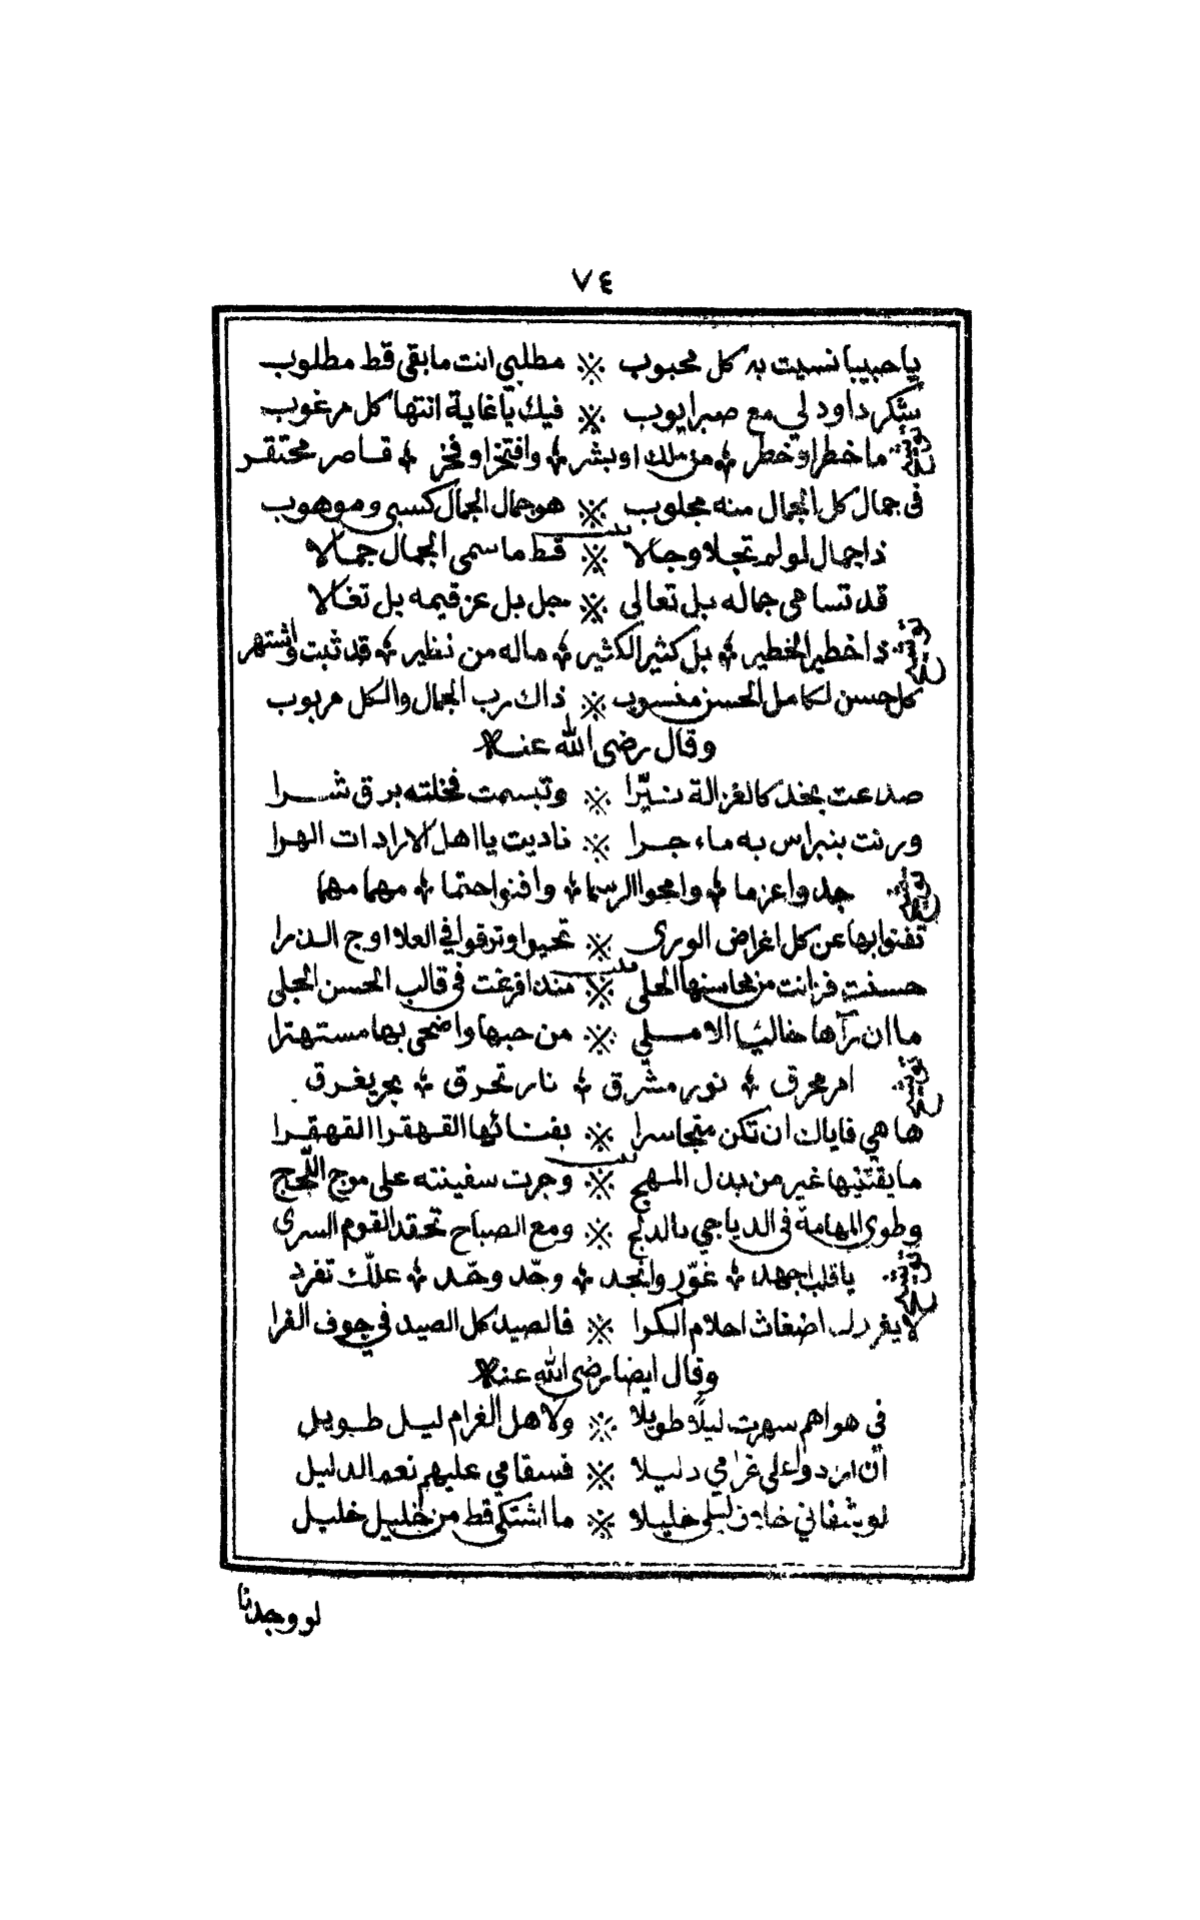 ٧٤
ياحبيبا نسيت به كل محبوب ※ مطلبي انت مابقى قط مطلوب
بشكر داود لي مع صبر ايوب ※ فيك يا غاية انتها كل مرغوب
توشيح ما خطر او خطر ⚜ من ملك او بشر ⚜ وافتخر او فخر ⚜ قاصر محتقر
في جمال كل الجمال منه مجلوب ※ هو جمال الجمال كسبى وموهوب
بيت
ذا جمال لو لم تجلا وجالا ※ قط ما سمى الجمال جمالا
قد تسامى جماله بل تعالى ※ جل بل عز قيمه بل تغالا
توشيح ذا خطير الخطير ⚜ بل كثير الكثير ⚜ ماله من نظير ⚜ قد ثبت واشتهر
كل حسن لكامل الحسن منسوب ※ ذاك رب الجمال والكل مربوب
وقال رضى الله عنه
صدعت بخد كالغزالة نيّرا ※ وتبسمت فخلته برق شرا
ورنت بنبراس به ماء جرا ※ ناديت يا اهل الارادات الهرا
توشيح جدوا عزما ⚜ وامحوا الرسما ⚜ وافنوا حتما ⚜ مهما مهما
تفنوا بها عن كل اغراض الورى ※ تحيوا وترقوا في العلا اوج الذرا
بيت
حسنت فزانت من محاسنها الحلي ※ منذ افرغت في قالب الحسن الجلي
ما ان رآها خاليا الا ملي ※ من حبها واضحى بها مستهترا
توشيح امر محرق ⚜ نور مشرق ⚜ نار تحرق ⚜ بحر يغرق
ها هي فاياك ان تكن متجاسرا ※ بفنائها القهقرا القهقرا
بيت
ما يقتنيها غير من بذل المهج ※ وجرت سفينته على موج اللّجج
وطوى المهامة في الدياجي بالدلج ※ ومع الصباح تحمد القوم السرى
توشيح يا قلب اجهد ⚜ غوّر وانجد ⚜ وحّد وحّد ⚜ علّك تفرد
لا يغررك اضغاث احلام الكرا ※ فالصيد كل الصيد في جوف الفرا
وقال ايضا رضي الله عنه
في هواهم سهرت ليلًا طويلا ※ ولاهل الغرام ليل طويل
ان ارادوا على غرامي دليلا ※ فسقامي عليهم نعم الدليل
لو شفاني خلاف ليلى خليلا ※ ما اشتكى قط من خليل خليل
لو وجدنا